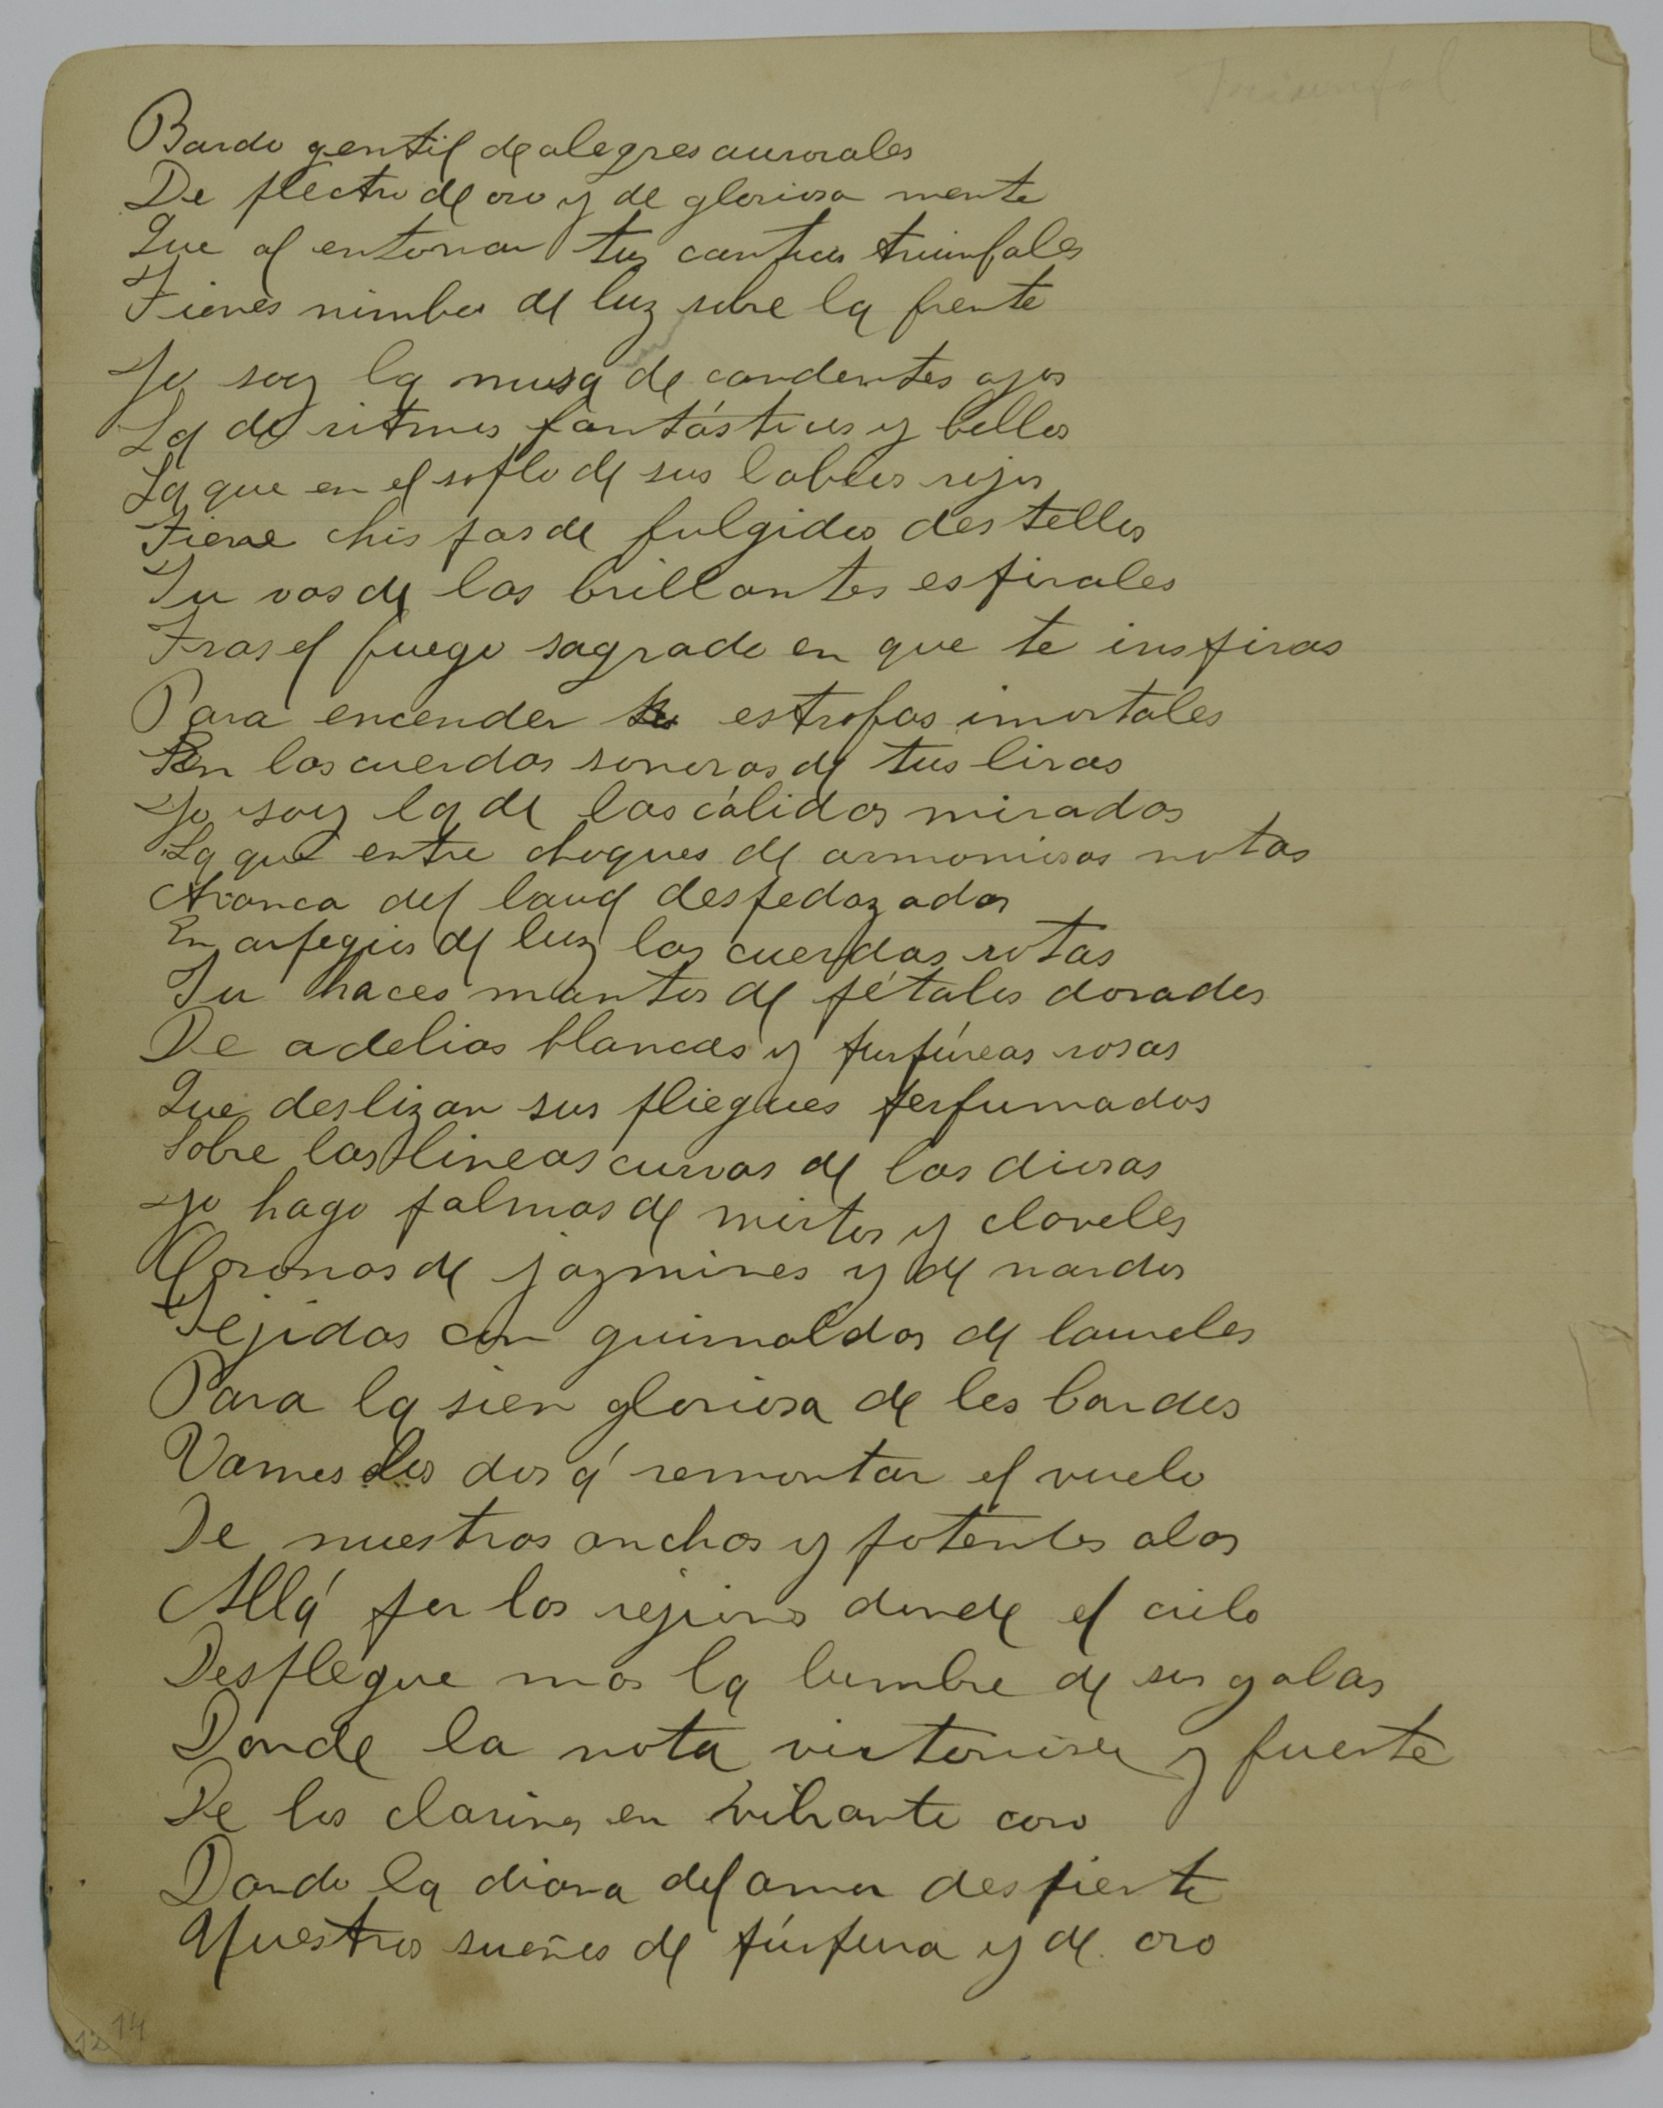 Triunfal
Bardo gentil de alegres aurorales
De plectro de oro y de gloriosa mente
Que al entonar tus canticos triunfales
Tienes nimbos de luz sobre la frente
Yo soy la musa de candentes ojos
La de ritmos fantásticos y bellos
La que en el soplo de sus labios rojos
Tiene chispas de fulgidos destellos
Tu vas de las brillantes espirales
Tras el fuego sagrado en que te inspiras
Para encender estrofas imortales
En las cuerdas sonoras de tus liras
Yo soy la de las cálidas miradas
La que entre choques de armoniosas notas
Aranca del laud despedazadas
En arpegios de luz las cuerdas rotas
Tu haces mantos de pétalos dorados
De adelias blancas y purpúreas rosas
Que deslizan sus pliegues perfumados
Sobre las lineas curvas de las diosas
Yo hago palmas de mirtos y claveles
Coronas de jazmines y de nardos
Tejidas con guirnaldas de laureles
Para la sien gloriosa de los bardos
Vamos los dos á remontar el vuelo
De nuestras anchas y potentes alas
Allá por las rejiones donde el cielo
Desplegue mas la lumbre de sus galas
Donde la nota victoriosa y fuerte
De los clarines en vibrante coro
Dando la diana del amor despierte
Nuestros sueños de púrpura y de oro
12 14